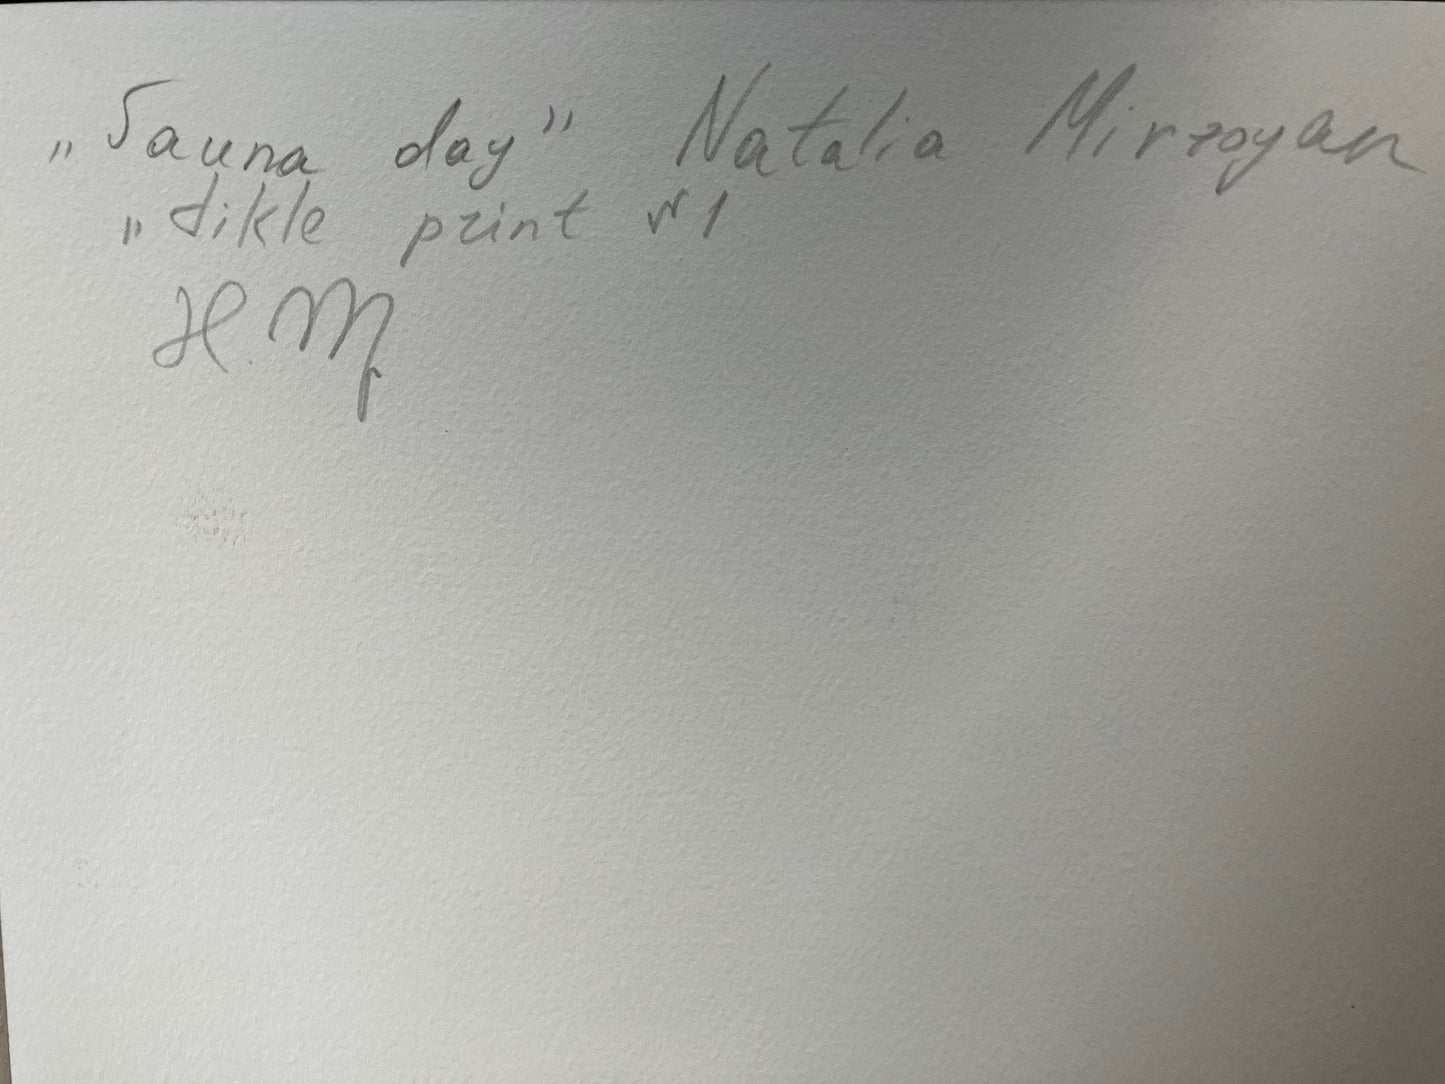 „Sauna day” Natalia Mirzoyan
„dikle print №1
Н.М